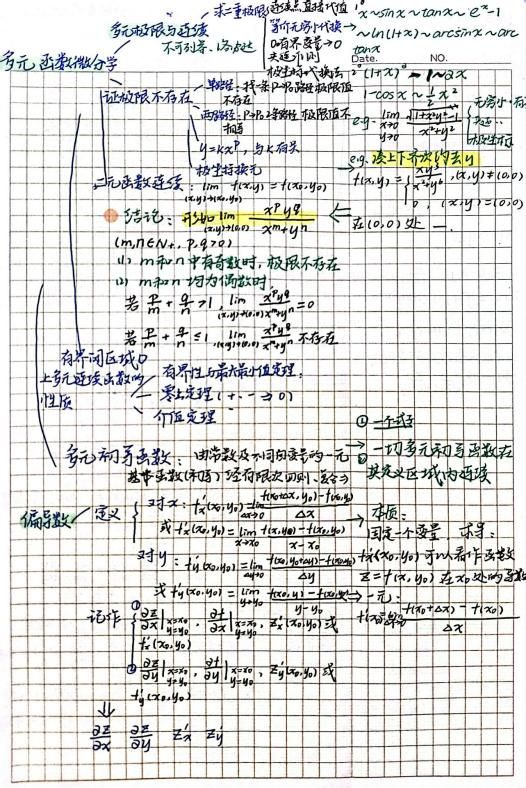 求二重极限 连续点直接代值
1° x~sinx~tanx~e^x-1
~ln(1+x)~arcsinx~arctanx
多元极限与连续
等价无穷小代换→
不可列举、洛必达
0·有界变量→0
夹逼准则
极坐标代换法
多元函数微分学
Date. NO.
2° (1+x)^a - 1 ~ ax
1-cosx ~ 1/2 x²
证极限不存在
单路径：找一条P→P0路径极限值不存在
两路径：P→P0 2条路径 极限值不相等
y=kx^p，与k有关
极坐标换元
e.g. lim x→0 y→0 √(1+x²y²)-1 / x²+y²
无穷小·有
极坐标
e.g. 凑上下齐次约去y
f(x,y)= { xy³/x²+y⁶ , (x,y)≠(0,0)
0 , (x,y)=(0,0)
在(0,0)处 __.
二元函数连续：lim (x,y)→(x0,y0) f(x,y)=f(x0,y0)
结论：形如 lim (x,y)→(0,0) x^p y^q / x^m+y^n ⇐
(m,n∈N+, p,q>0)
(1) m和n中有奇数时，极限不存在
(2) m和n均为偶数时
若 p/m + q/n >1, lim (x,y)→(0,0) x^p y^q / x^m+y^n =0
若 p/m + q/n ≤1, lim (x,y)→(0,0) x^p y^q / x^m+y^n 不存在
有界闭区域D
上多元连续函数的
性质
有界性与最大最小值定理：
零点定理 (+·-→0)
介值定理
多元初等函数：由常数及不同自变量的一元
基本函数(初等)经有限次四则、复合→
① 一个式子
② 一切多元初等函数在
其定义区域内连续
偏导数 定义
对x：f'x(x0,y0)=lim Δx→0 f(x0+Δx,y0)-f(x0,y0) / Δx
或 f'x(x0,y0)=lim x→x0 f(x,y0)-f(x0,y0) / x-x0
对y：f'y(x0,y0)=lim Δy→0 f(x0,y0+Δy)-f(x0,y0) / Δy
或 f'y(x0,y0)=lim y→y0 f(x0,y)-f(x0,y0) / y-y0
本质：
固定一个变量 求导：
f'x(x0,y0) 可以看作函数
z=f(x,y0) 在x0处的导数
→一元：
f(x0+Δx)-f(x0) / Δx
记作
① ∂z/∂x | x=x0 y=y0 , ∂f/∂x | x=x0 y=y0 , z'x(x0,y0) 或
f'x(x0,y0)
② ∂z/∂y | x=x0 y=y0 , ∂f/∂y | x=x0 y=y0 , z'y(x0,y0) 或
f'y(x0,y0)
⇓
∂z/∂x ∂z/∂y z'x z'y